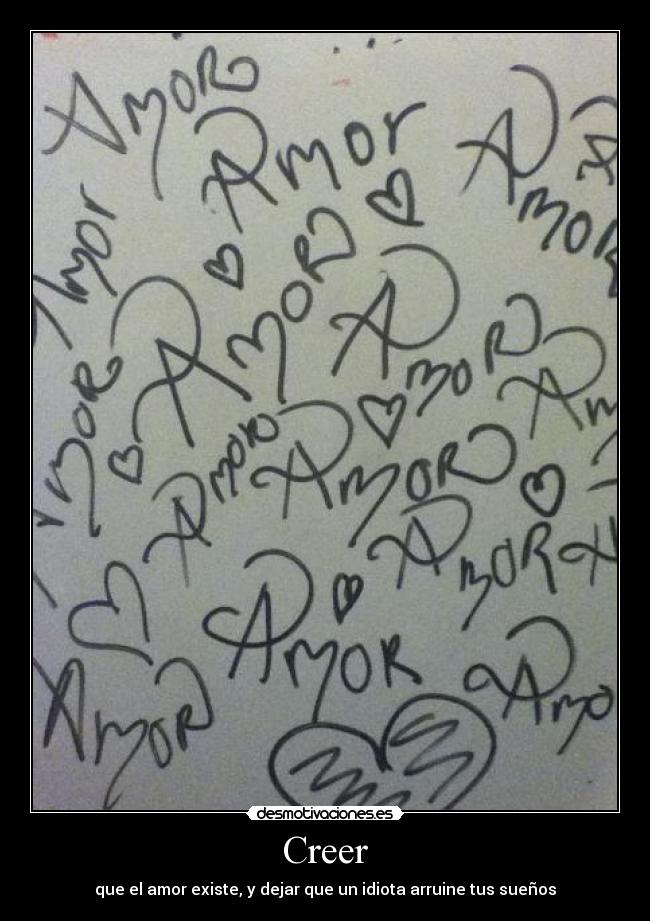 Amor
Amor
Amor
Amor
Amor
Amor
Amor
Amor
Amor
Amor
Amor
Amor
Amor
Amo
desmotivaciones.es
Creer
que el amor existe, y dejar que un idiota arruine tus sueños